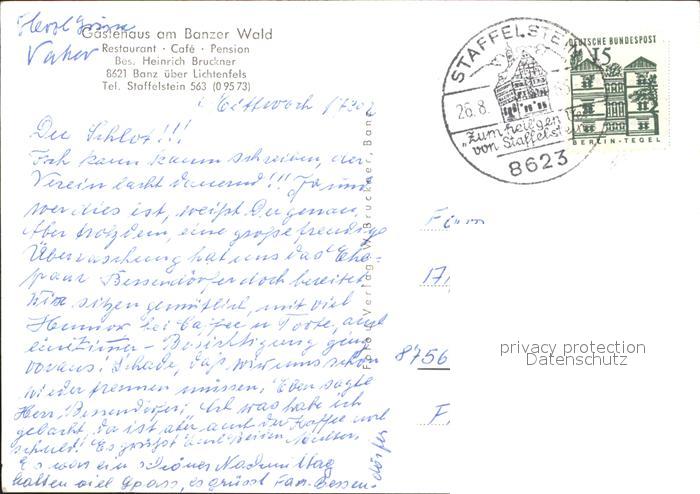 Herzl.
Vater
Gästehaus am Banzer Wald
Restaurant · Café · Pension
Bes. Heinrich Bruckner
8621 Banz über Lichtenfels
Tel. Staffelstein 563 (0 95 73)
STAFFELSTEIN
26.8.
"Zum heiligen
von Staffelstein
8623
DEUTSCHE BUNDESPOST
15
BERLIN-TEGEL
Mittwoch
Du Schlot!!!
Ich kann kaum schreiben, der
Verein lacht dauernd!!! Ja und
wer dies ist, weißt Du genau.
Aber trotzdem, eine große freudige
Überraschung hat uns das Ehe-
paar Bessendörfer doch bereitet,
Wir sitzen gemütlich, mit viel
Humor bei Caffee u Torte, auch
eine - Besichtigung ging
voraus! Schade, daß wir uns schon
wieder trennen müssen, Eben sagte
Herr Bessendörfer, Ich was habe ich
gelacht, da ist aber auch der Kaffee
schuld! Es grüßt Euch beiden
Es war ein schöner Nachmittag
hatten viel Spass, es grüsst Fam. Bessen-
dörfer
Foto u. Verlag W. Bruckner, Banz
17
8756
F
privacy protection
Datenschutz